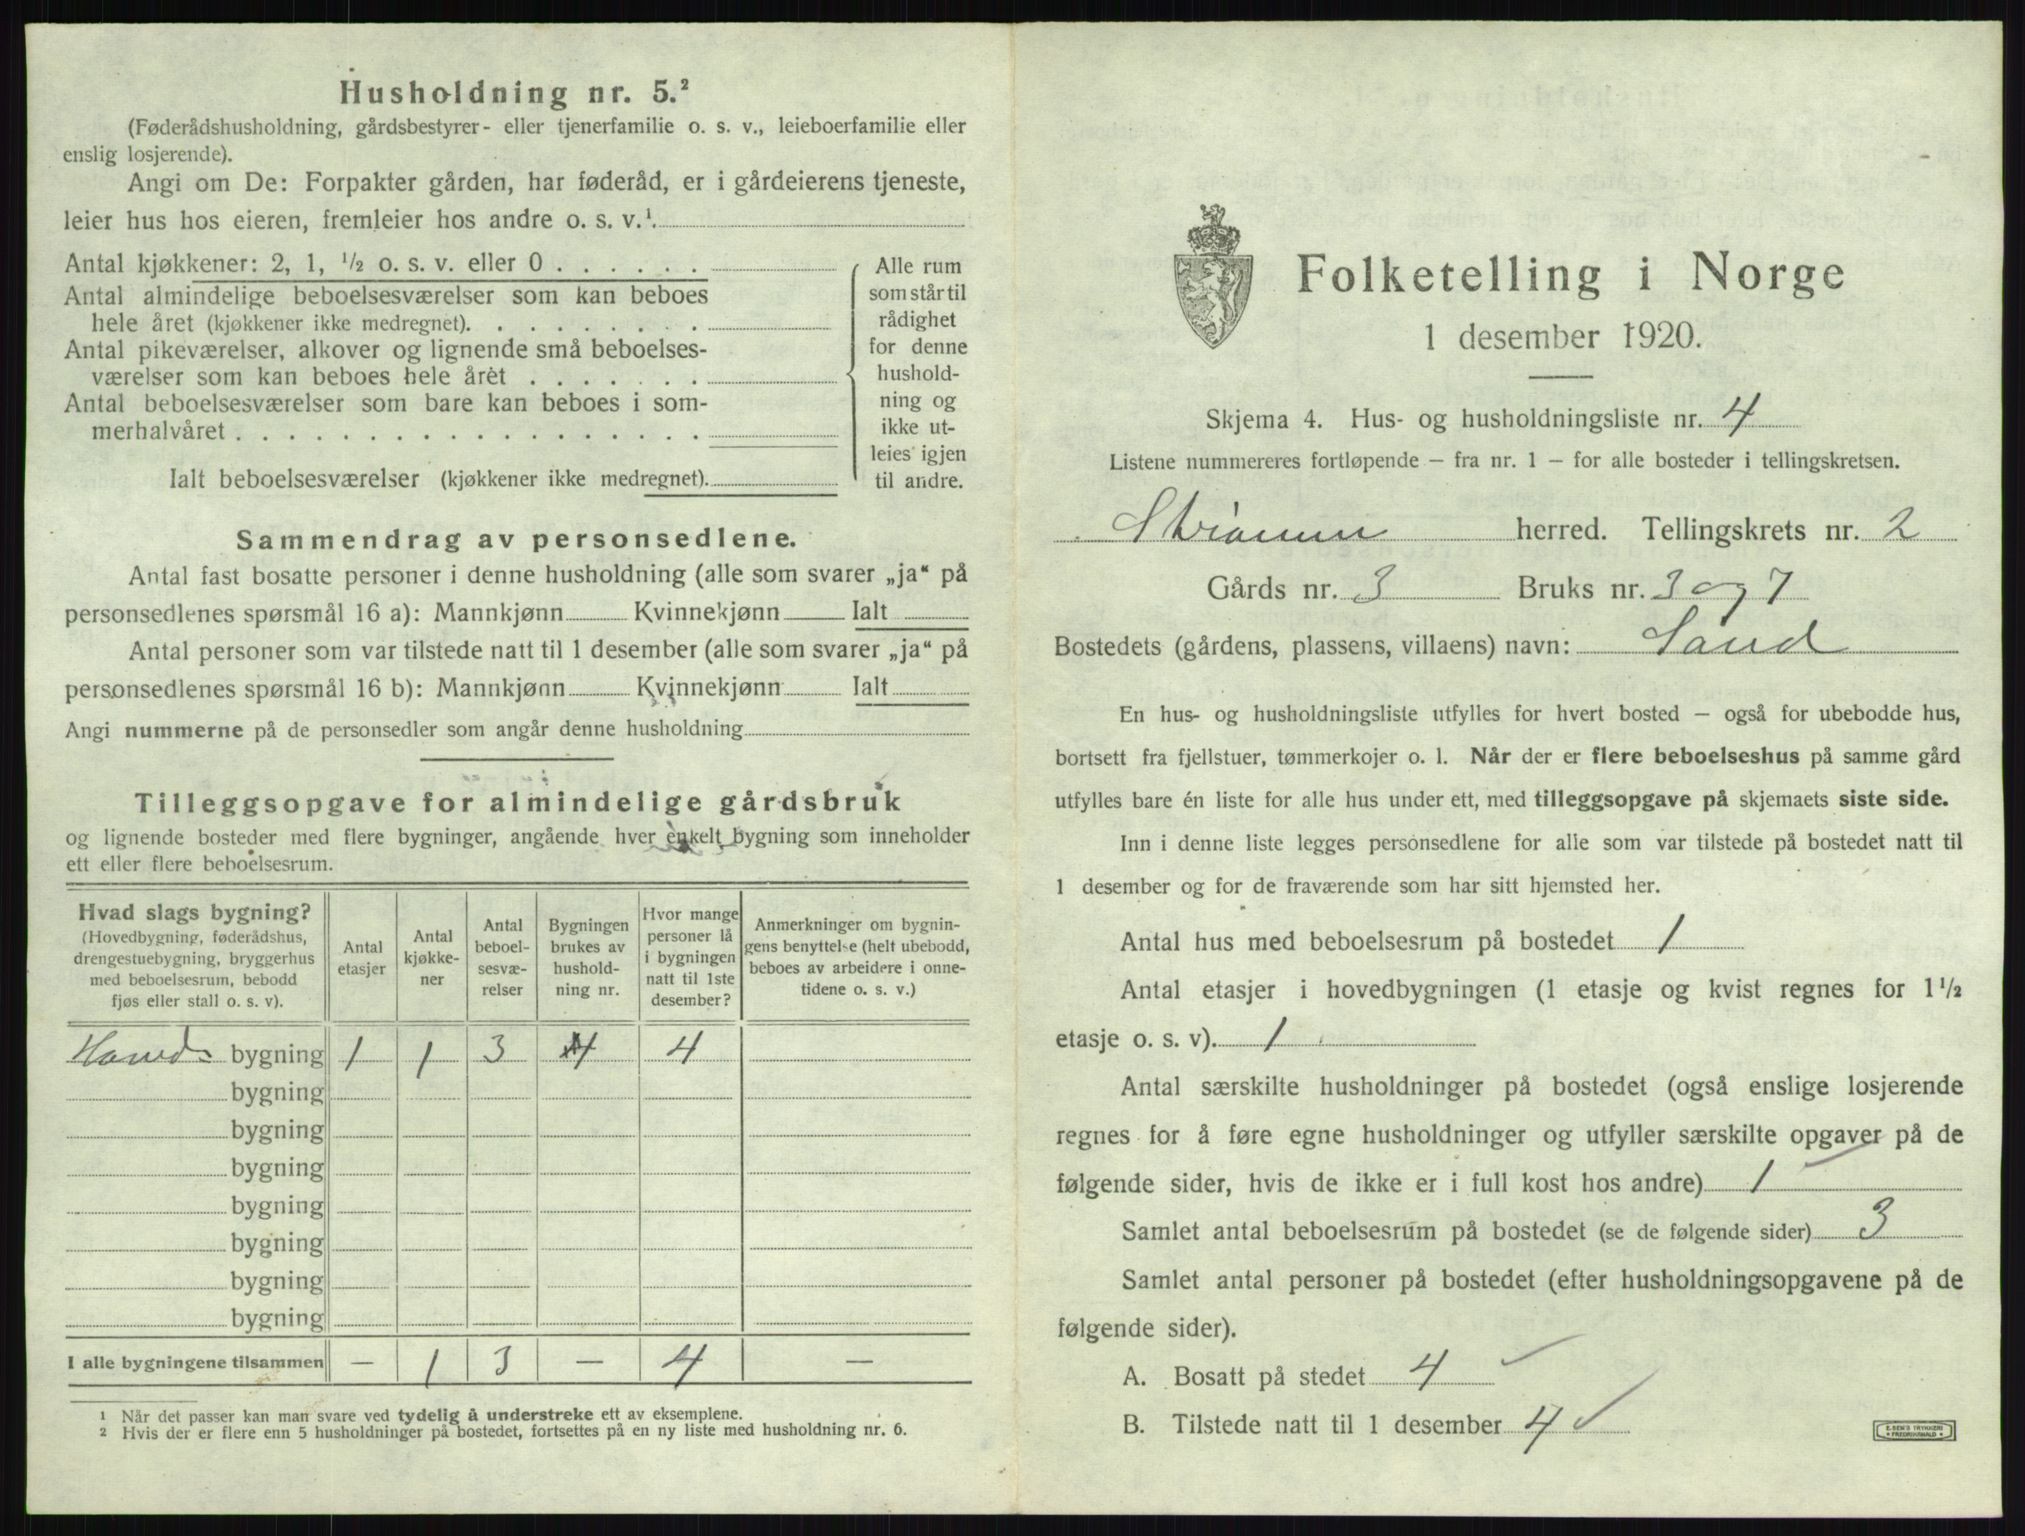 Husholdning nr. 5.²
(Føderådshusholdning, gårdsbestyrer- eller tjenerfamilie o. s. v., leieboerfamilie eller
enslig losjerende).
Angi om De: Forpakter gården, har føderåd, er i gårdeierens tjeneste,
leier hus hos eieren, fremleier hos andre o. s. v.¹
Antal kjøkkener: 2, 1, ½ o. s. v. eller 0 . . . . . .
Antal almindelige beboelsesværelser som kan beboes
hele året (kjøkkener ikke medregnet). . . . . . . . .
Antal pikeværelser, alkover og lignende små beboelses-
værelser som kan beboes hele året . . . . . . .
Antal beboelsesværelser som bare kan beboes i som-
merhalvåret . . . . . . . . . . . . . . . . . .
Ialt beboelsesværelser (kjøkkener ikke medregnet).
Alle rum
som står til
rådighet
for denne
hushold-
ning og
ikke ut-
leies igjen
til andre.
Sammendrag av personsedlene.
Antal fast bosatte personer i denne husholdning (alle som svarer „ja“ på
personsedlenes spørsmål 16 a): Mannkjønn Kvinnekjønn Ialt
Antal personer som var tilstede natt til 1 desember (alle som svarer „ja“ på
personsedlenes spørsmål 16 b): Mannkjønn Kvinnekjønn Ialt
Angi nummerne på de personsedler som angår denne husholdning
Tilleggsopgave for almindelige gårdsbruk
og lignende bosteder med flere bygninger, angående hver enkelt bygning som inneholder
ett eller flere beboelsesrum.
Hvad slags bygning?
(Hovedbygning, føderådshus,
drengestuebygning, bryggerhus
med beboelsesrum, bebodd
fjøs eller stall o. s. v).
Antal
etasjer
Antal
kjøkke-
ner
Antal
beboel-
sesvæ-
relser
Bygningen
brukes av
hushold-
ning nr.
Hvor mange
personer lå
i bygningen
natt til 1ste
desember?
Anmerkninger om bygnin-
gens benyttelse (helt ubebodd,
beboes av arbeidere i onne-
tidene o. s. v.)
Hoveds bygning 1 1 3 4 4
bygning
bygning
bygning
bygning
bygning
bygning
bygning
I alle bygningene tilsammen — 1 3 — 4 —
¹ Når det passer kan man svare ved tydelig å understreke ett av eksemplene.
² Hvis der er flere enn 5 husholdninger på bostedet, fortsettes på en ny liste med husholdning nr. 6.
Folketelling i Norge
1 desember 1920.
Skjema 4. Hus- og husholdningsliste nr. 4
Listene nummereres fortløpende – fra nr. 1 – for alle bosteder i tellingskretsen.
Strømm herred. Tellingskrets nr. 2
Gårds nr. 3 Bruks nr. 3 og 7
Bostedets (gårdens, plassens, villaens) navn: Sand
En hus- og husholdningsliste utfylles for hvert bosted – også for ubebodde hus,
bortsett fra fjellstuer, tømmerkojer o. l. Når der er flere beboelseshus på samme gård
utfylles bare én liste for alle hus under ett, med tilleggsopgave på skjemaets siste side.
Inn i denne liste legges personsedlene for alle som var tilstede på bostedet natt til
1 desember og for de fraværende som har sitt hjemsted her.
Antal hus med beboelsesrum på bostedet 1
Antal etasjer i hovedbygningen (1 etasje og kvist regnes for 1½
etasje o. s. v). 1
Antal særskilte husholdninger på bostedet (også enslige losjerende
regnes for å føre egne husholdninger og utfyller særskilte opgaver på de
følgende sider, hvis de ikke er i full kost hos andre) 1
Samlet antal beboelsesrum på bostedet (se de følgende sider) 3
Samlet antal personer på bostedet (efter husholdningsopgavene på de
følgende sider).
A. Bosatt på stedet 4
B. Tilstede natt til 1 desember 4